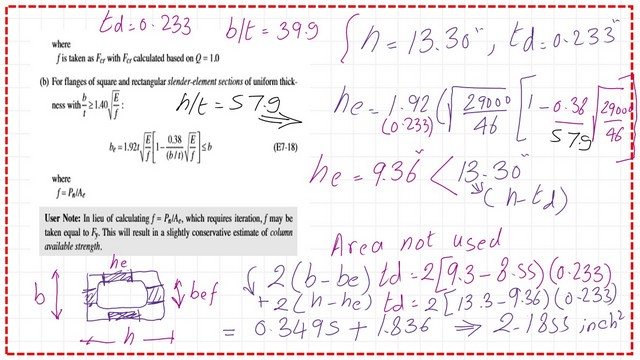 td=0.233 b/t=39.9
where
f is taken as Fcr with Fcr calculated based on Q = 1.0
(b) For flanges of square and rectangular slender-element sections of uniform thick-
ness with b/t ≥ 1.40√(E/f) :
h/t = 57.9
be = 1.92t√(E/f) [1 − 0.38/(b/t) √(E/f)] ≤ b (E7-18)
where
f = Pn/Ae
User Note: In lieu of calculating f = Pn/Ae, which requires iteration, f may be
taken equal to Fy. This will result in a slightly conservative estimate of column
available strength.
he
b
bef
h
h = 13.30", td=0.233"
he = 1.92 (√(29000/46) [1 − 0.38/57.9 √(29000/46)]
(0.233)
he = 9.36" < 13.30"
(h-td)
Area not used
2(b-be) td = 2[9.3-8.55)(0.233)
+2(h-he) td = 2[13.3-9.36)(0.233)
= 0.3495 + 1.836 ⇒ 2.1855 inch²